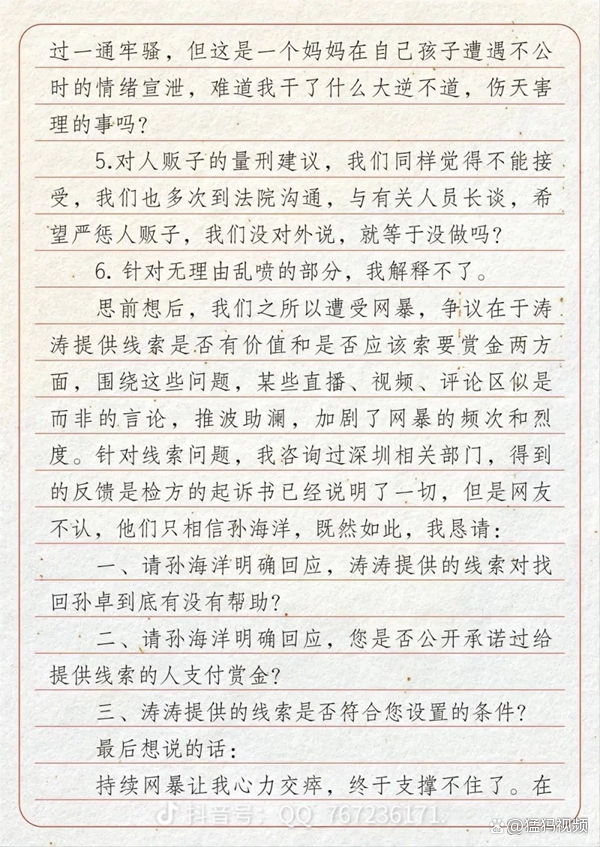 过一通牢骚，但这是一个妈妈在自己孩子遭遇不公
时的情绪宣泄，难道我干了什么大逆不道，伤天害
理的事吗？
5.对人贩子的量刑建议，我们同样觉得不能接
受，我们也多次到法院沟通，与有关人员长谈，希
望严惩人贩子，我们没对外说，就等于没做吗？
6. 针对无理由乱喷的部分，我解释不了。
思前想后，我们之所以遭受网暴，争议在于涛
涛提供线索是否有价值和是否应该索要赏金两方
面，围绕这些问题，某些直播、视频、评论区似是
而非的言论，推波助澜，加剧了网暴的频次和烈
度。针对线索问题，我咨询过深圳相关部门，得到
的反馈是检方的起诉书已经说明了一切，但是网友
不认，他们只相信孙海洋，既然如此，我恳请：
一、请孙海洋明确回应，涛涛提供的线索对找
回孙卓到底有没有帮助？
二、请孙海洋明确回应，您是否公开承诺过给
提供线索的人支付赏金？
三、涛涛提供的线索是否符合您设置的条件？
最后想说的话：
持续网暴让我心力交瘁，终于支撑不住了。在
抖音号：QQ_767236171
@猛犸视频